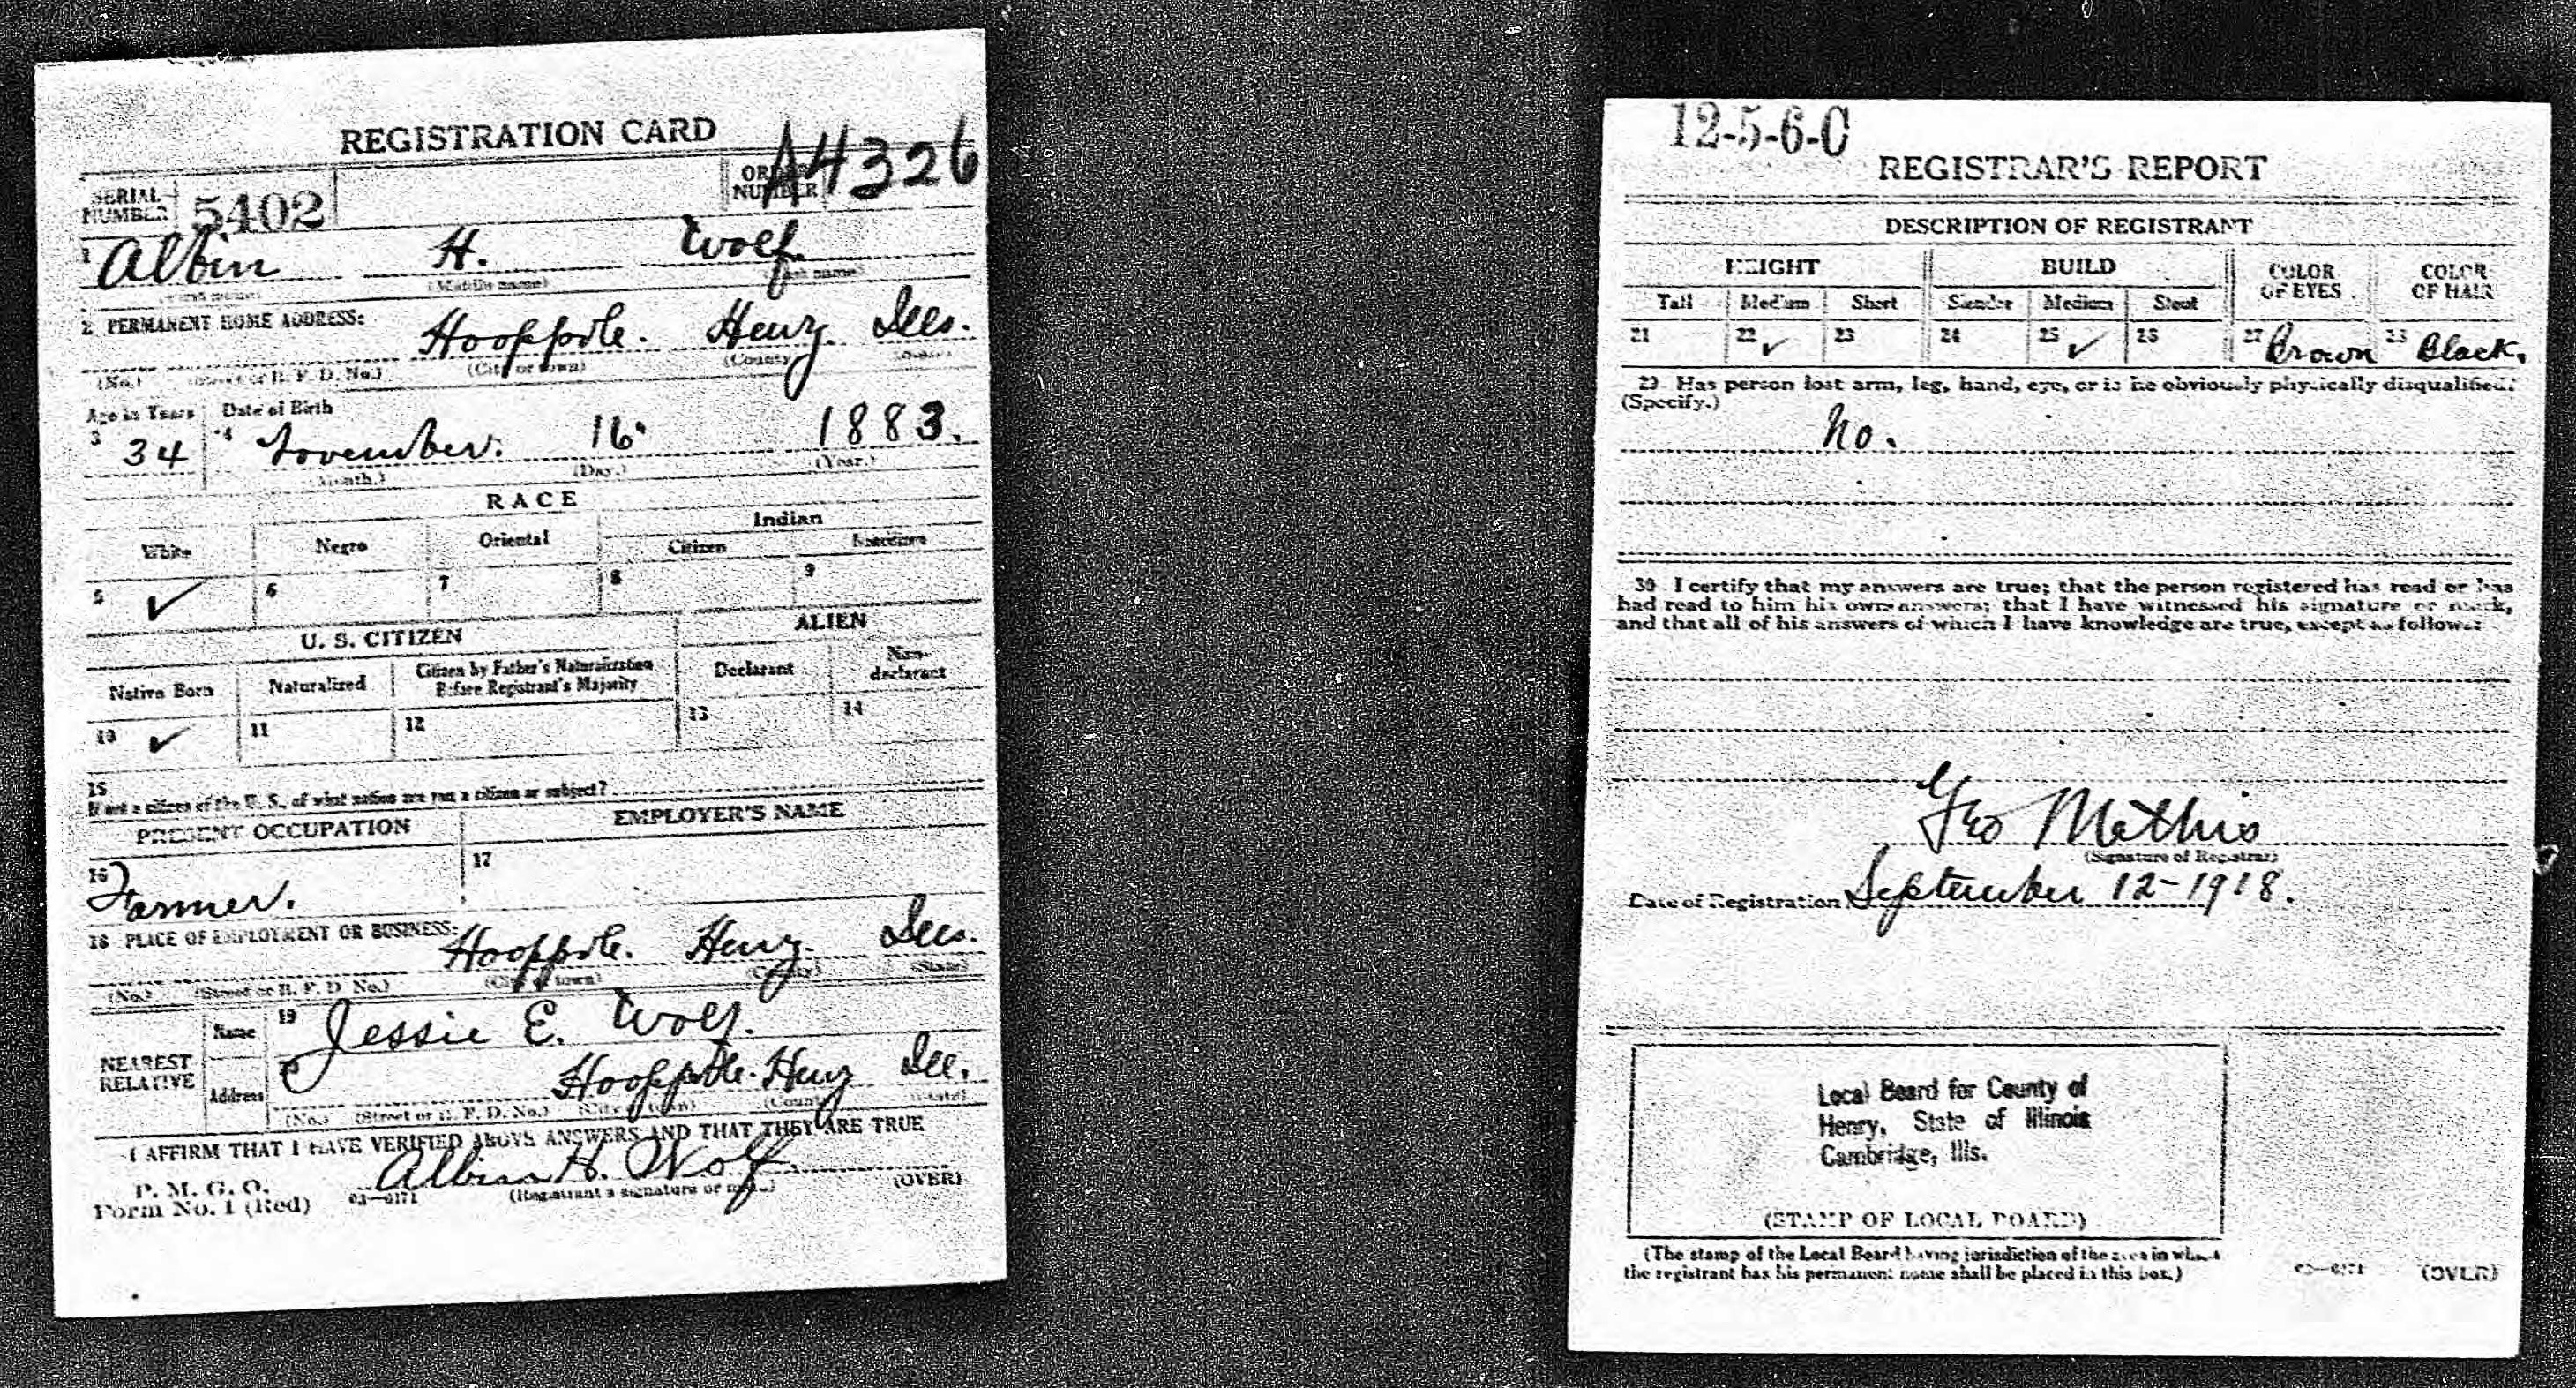 REGISTRATION CARD
SERIAL NUMBER 5402 ORDER NUMBER A4326
1 Albin H. Wolf.
(Middle name) (Last name)
2 PERMANENT HOME ADDRESS:
Hooppole. Henry. Ills.
(No.) (Street or R. F. D. No.) (City or town) (County) (State)
Age in Years Date of Birth
3 34 4 November. 16. 1883.
(Month.) (Day.) (Year.)
RACE
White Negro Oriental Indian
Citizen Noncitizen
5 ✓ 6 7 8 9
U. S. CITIZEN ALIEN
Native Born Naturalized Citizen by Father's Naturalization Before Registrant's Majority Declarant Non-declarant
10 ✓ 11 12 13 14
15
If not a citizen of the U. S., of what nation are you a citizen or subject?
PRESENT OCCUPATION EMPLOYER'S NAME
16 Farmer. 17
18 PLACE OF EMPLOYMENT OR BUSINESS:
Hooppole. Henry. Ills.
(No.) (Street or R. F. D. No.) (City or town) (County) (State)
NEAREST RELATIVE
Name 19 Jessie E. Wolf.
Address 20 Hooppole. Henry Ill.
(No.) (Street or R. F. D. No.) (City or town) (County) (State)
I AFFIRM THAT I HAVE VERIFIED ABOVE ANSWERS AND THAT THEY ARE TRUE
P. M. G. O.
Form No. 1 (Red) 03—6171 Albin H. Wolf
(Registrant's signature or mark) (OVER)
12-5-6-C
REGISTRAR'S REPORT
DESCRIPTION OF REGISTRANT
HEIGHT BUILD COLOR OF EYES COLOR OF HAIR
Tall Medium Short Slender Medium Stout
21 22 ✓ 23 24 25 ✓ 26 27 Brown 28 Black.
29 Has person lost arm, leg, hand, eye, or is he obviously physically disqualified?
(Specify.)
No.
30 I certify that my answers are true; that the person registered has read or has
had read to him his own answers; that I have witnessed his signature or mark,
and that all of his answers of which I have knowledge are true, except as follows:
Geo Mathis
(Signature of Registrar)
Date of Registration September 12-1918.
Local Board for County of
Henry, State of Illinois
Cambridge, Ills.
(STAMP OF LOCAL BOARD)
(The stamp of the Local Board having jurisdiction of the area in which
the registrant has his permanent home shall be placed in this box.)
03—6171 (OVER)